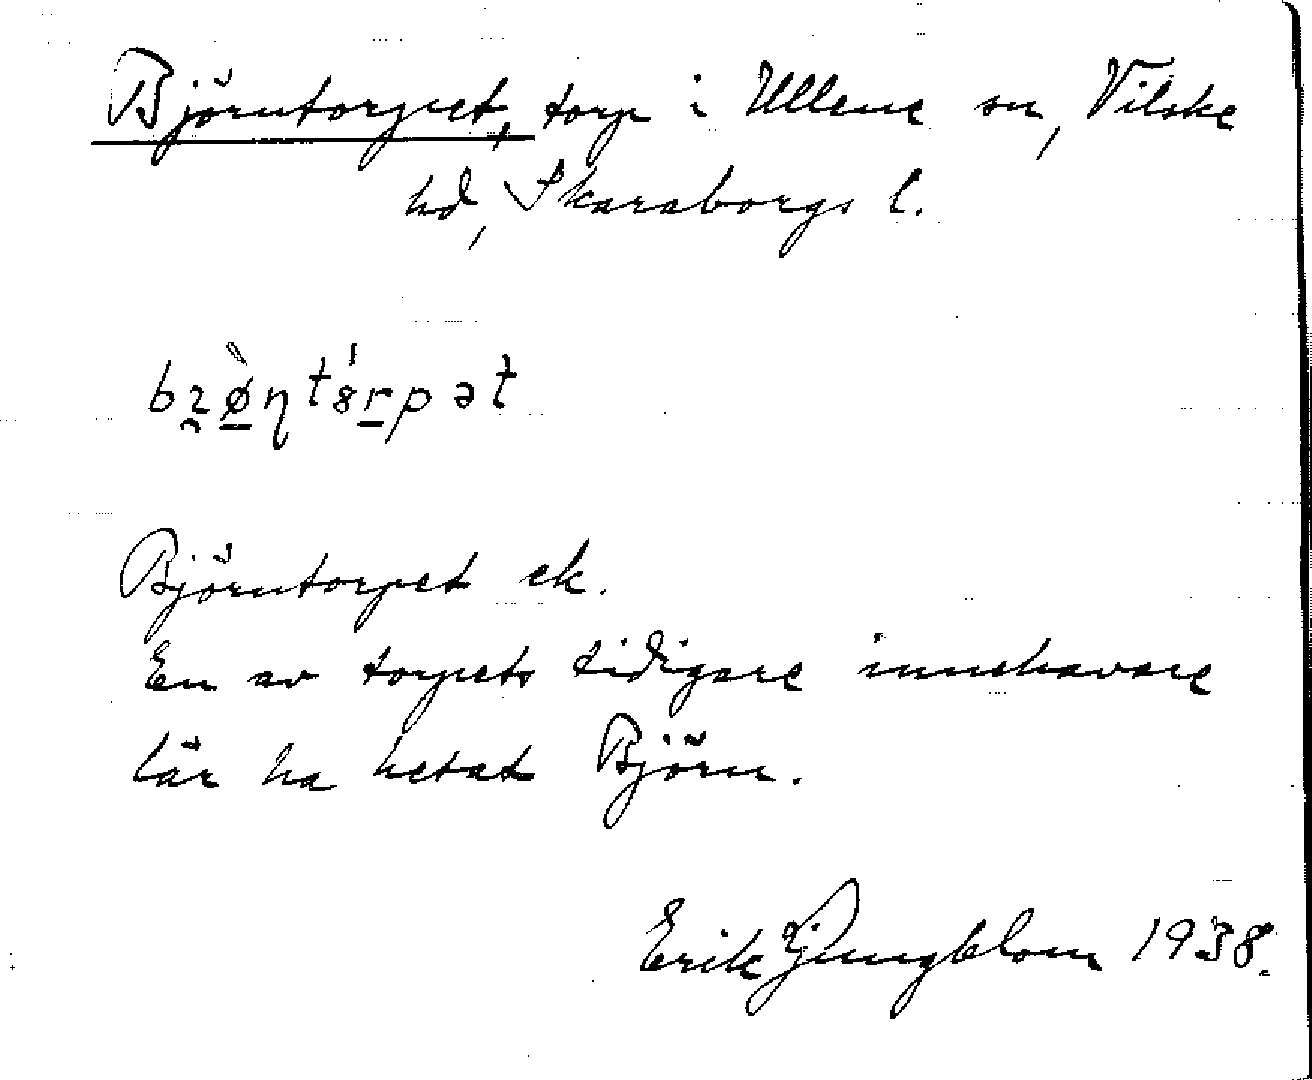 Björntorpet, torp i Ullene sn, Vilske
hd, Skaraborgs l.
Björntorpet ek.
En av torpets tidigare innehavare
lär ha hetat Björn.
Erik Ljungblom 1938.